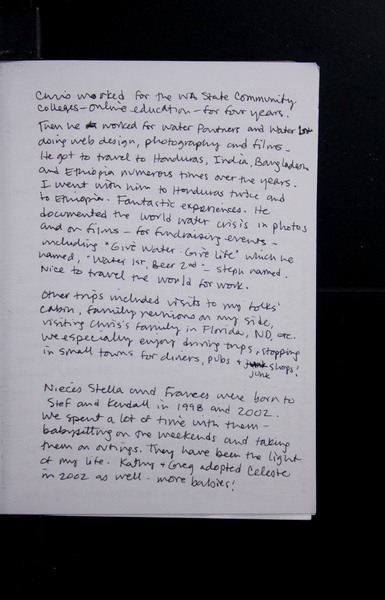 Chris worked for the WA State Community
Colleges - online education - for four years.
Then he worked for Water Partners and Water 1st
doing web design, photography and films -
He got to travel to Honduras, India, Bangladesh
and Ethiopia numerous times over the years.
I went with him to Honduras twice and
to Ethiopia. Fantastic experiences. He
documented the world water crisis in photos
and on films - for fundraising events -
including "Give Water. Give Life" which he
named, "Water 1st, Beer 2nd" - Steph named.
Nice to travel the world for work.
Other trips included visits to my folks'
cabin, family reunions on my side,
visiting Chris's family in Florida, ND, etc.
We especially enjoy driving trips, stopping
in small towns for diners, pubs & junk shops!
junk
Nieces Stella and Frances were born to
Stef and Kendall in 1998 and 2002.
We spent a lot of time with them -
babysitting on the weekends and taking
them on outings. They have been the light
of my life. Kathy & Greg adopted Celeste
in 2002 as well - more babies!